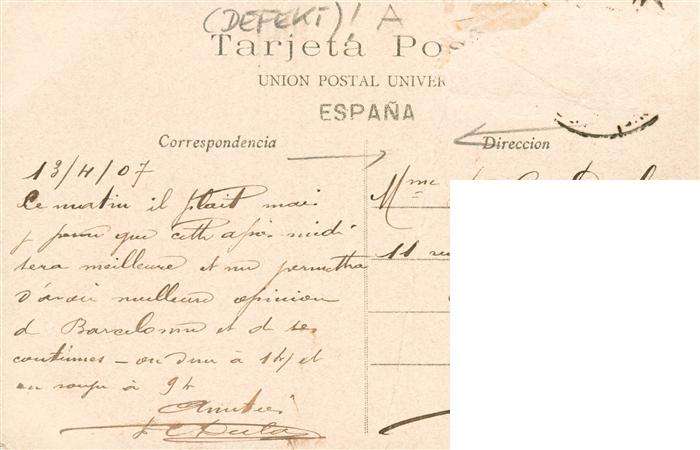 (DEFEKT)! A
Tarjeta Pos
UNION POSTAL UNIVER
ESPAÑA
Correspondencia
Direccion
13/4/07
Ce matin il plait mais
que cette après midi
sera meilleure et me permettra
d'avoir meilleure opinion
d Barcelonne et de ses
coutumes - on dine à 14 et
on soupe à 9h
Amitiés
Mme
11